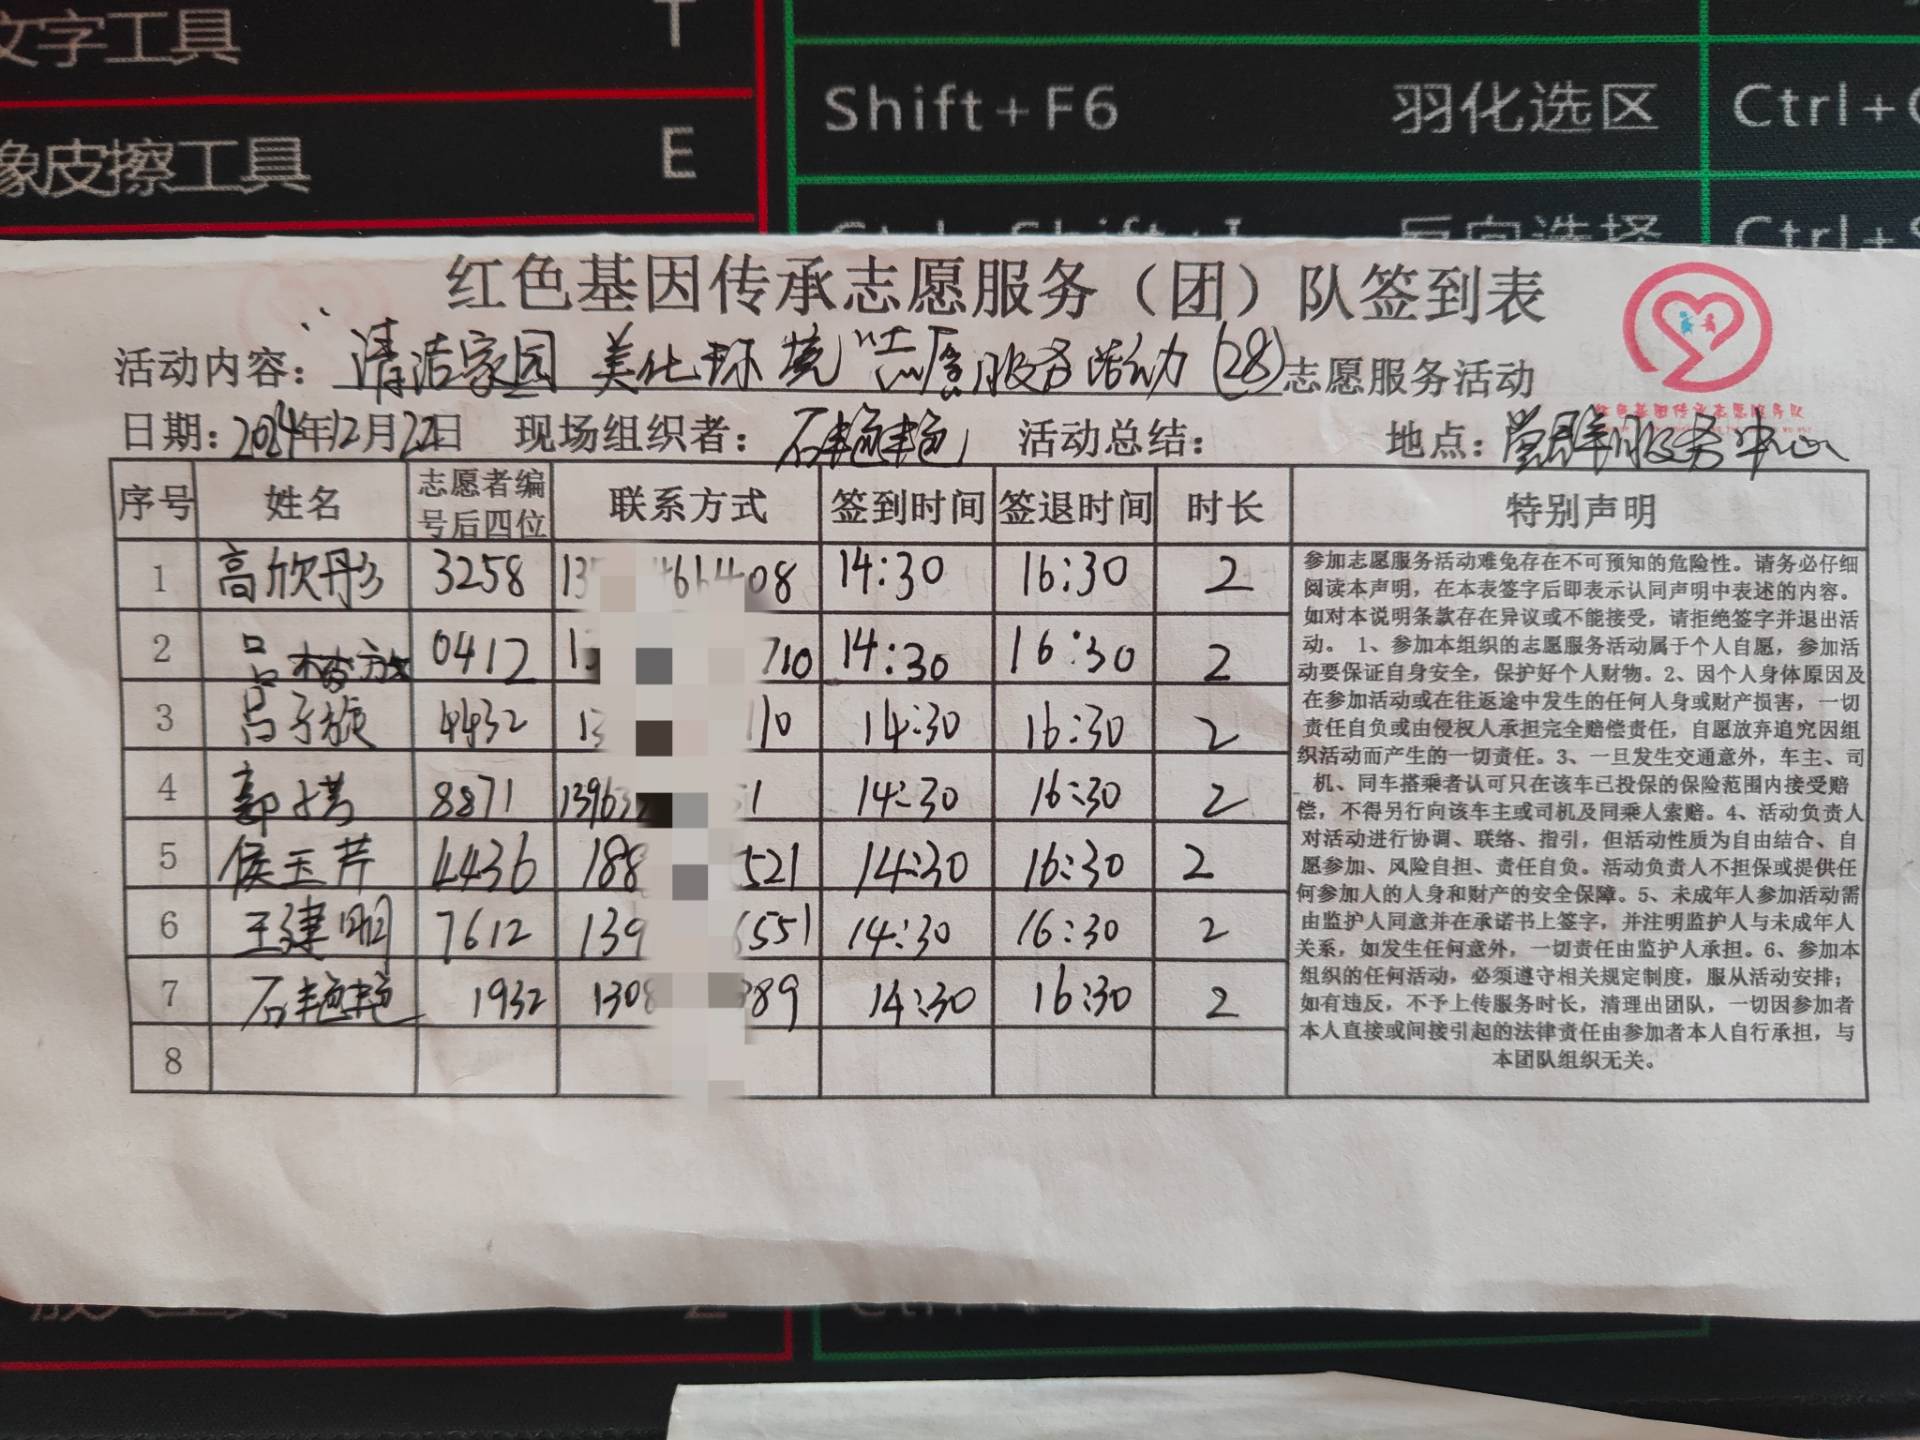 文字工具 T
Shift+F6 羽化选区 Ctrl+
橡皮擦工具 E
Ctrl+Shift+I 反向选择 Ctrl+S
红色基因传承志愿服务（团）队签到表
活动内容：“清洁家园 美化环境”志愿服务活动(28)志愿服务活动
红色基因传承志愿服务队
日期：2024年12月22日 现场组织者：石艳艳 活动总结： 地点：党群服务中心
序号 姓名 志愿者编号后四位 联系方式 签到时间 签退时间 时长 特别声明
1 高欣彤 3258 08 14:30 16:30 2
2 吕 0412 710 14:30 16:30 2
3 吕子旋 4432 13 110 14:30 16:30 2
4 郭 8871 139632 1 14:30 16:30 2
5 侯玉芹 4436 188 521 14:30 16:30 2
6 王建明 7612 139 6551 14:30 16:30 2
7 石艳艳 1932 1308 889 14:30 16:30 2
8
参加志愿服务活动难免存在不可预知的危险性。请务必仔细
阅读本声明，在本表签字后即表示认同声明中表述的内容。
如对本说明条款存在异议或不能接受，请拒绝签字并退出活
动。 1、参加本组织的志愿服务活动属于个人自愿，参加活
动要保证自身安全，保护好个人财物。2、因个人身体原因及
在参加活动或在往返途中发生的任何人身或财产损害，一切
责任自负或由侵权人承担完全赔偿责任，自愿放弃追究因组
织活动而产生的一切责任。3、一旦发生交通意外，车主、司
机、同车搭乘者认可只在该车已投保的保险范围内接受赔
偿，不得另行向该车主或司机及同乘人索赔。4、活动负责人
对活动进行协调、联络、指引，但活动性质为自由结合、自
愿参加、风险自担、责任自负。活动负责人不担保或提供任
何参加人的人身和财产的安全保障。5、未成年人参加活动需
由监护人同意并在承诺书上签字，并注明监护人与未成年人
关系，如发生任何意外，一切责任由监护人承担。6、参加本
组织的任何活动，必须遵守相关规定制度，服从活动安排；
如有违反，不予上传服务时长，清理出团队，一切因参加者
本人直接或间接引起的法律责任由参加者本人自行承担，与
本团队组织无关。